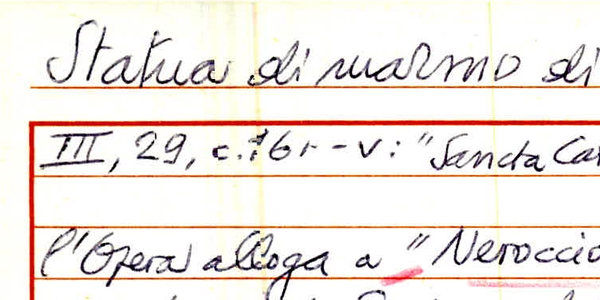 Statua di marmo di
III, 29, c. 76r-v: "Sancta Ca
l'Opera alloga a "Neroccio